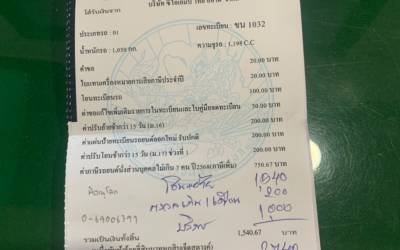 ได้รับเงินจาก
ประเภทรถ : 01 เลขทะเบียน : ขน 1032
น้ำหนักรถ : 1,050 กก. ความจุรถ : 1,198 C.C
ค่าขอ 20.00 บาท
ใบแทนเครื่องหมายการเสียภาษีประจำปี 20.00 บาท
โอนทะเบียนรถ 100.00 บาท
ค่าขอแก้ไขเพิ่มเติมรายการในทะเบียนและใบคู่มือจดทะเบียน 50.00 บาท
ค่าปรับย้ายช้ากว่า 15 วัน (ม.16) 200.00 บาท
ค่าแผ่นป้ายทะเบียนรถยนต์ออกใหม่ รับปกติ 200.00 บาท
ค่าปรับโอนช้ากว่า 15 วัน (ม.17) ช่วงที่ 1 200.00 บาท
ค่าภาษีรถยนต์นั่งส่วนบุคคลไม่เกิน 7 คน ปี2568(ภาษีเพิ่ม) 750.67 บาท
1,540
200
0-69006797
บริการ 1,000
รวมเป็นเงินทั้งสิ้น 1,540.67 บาท
2740